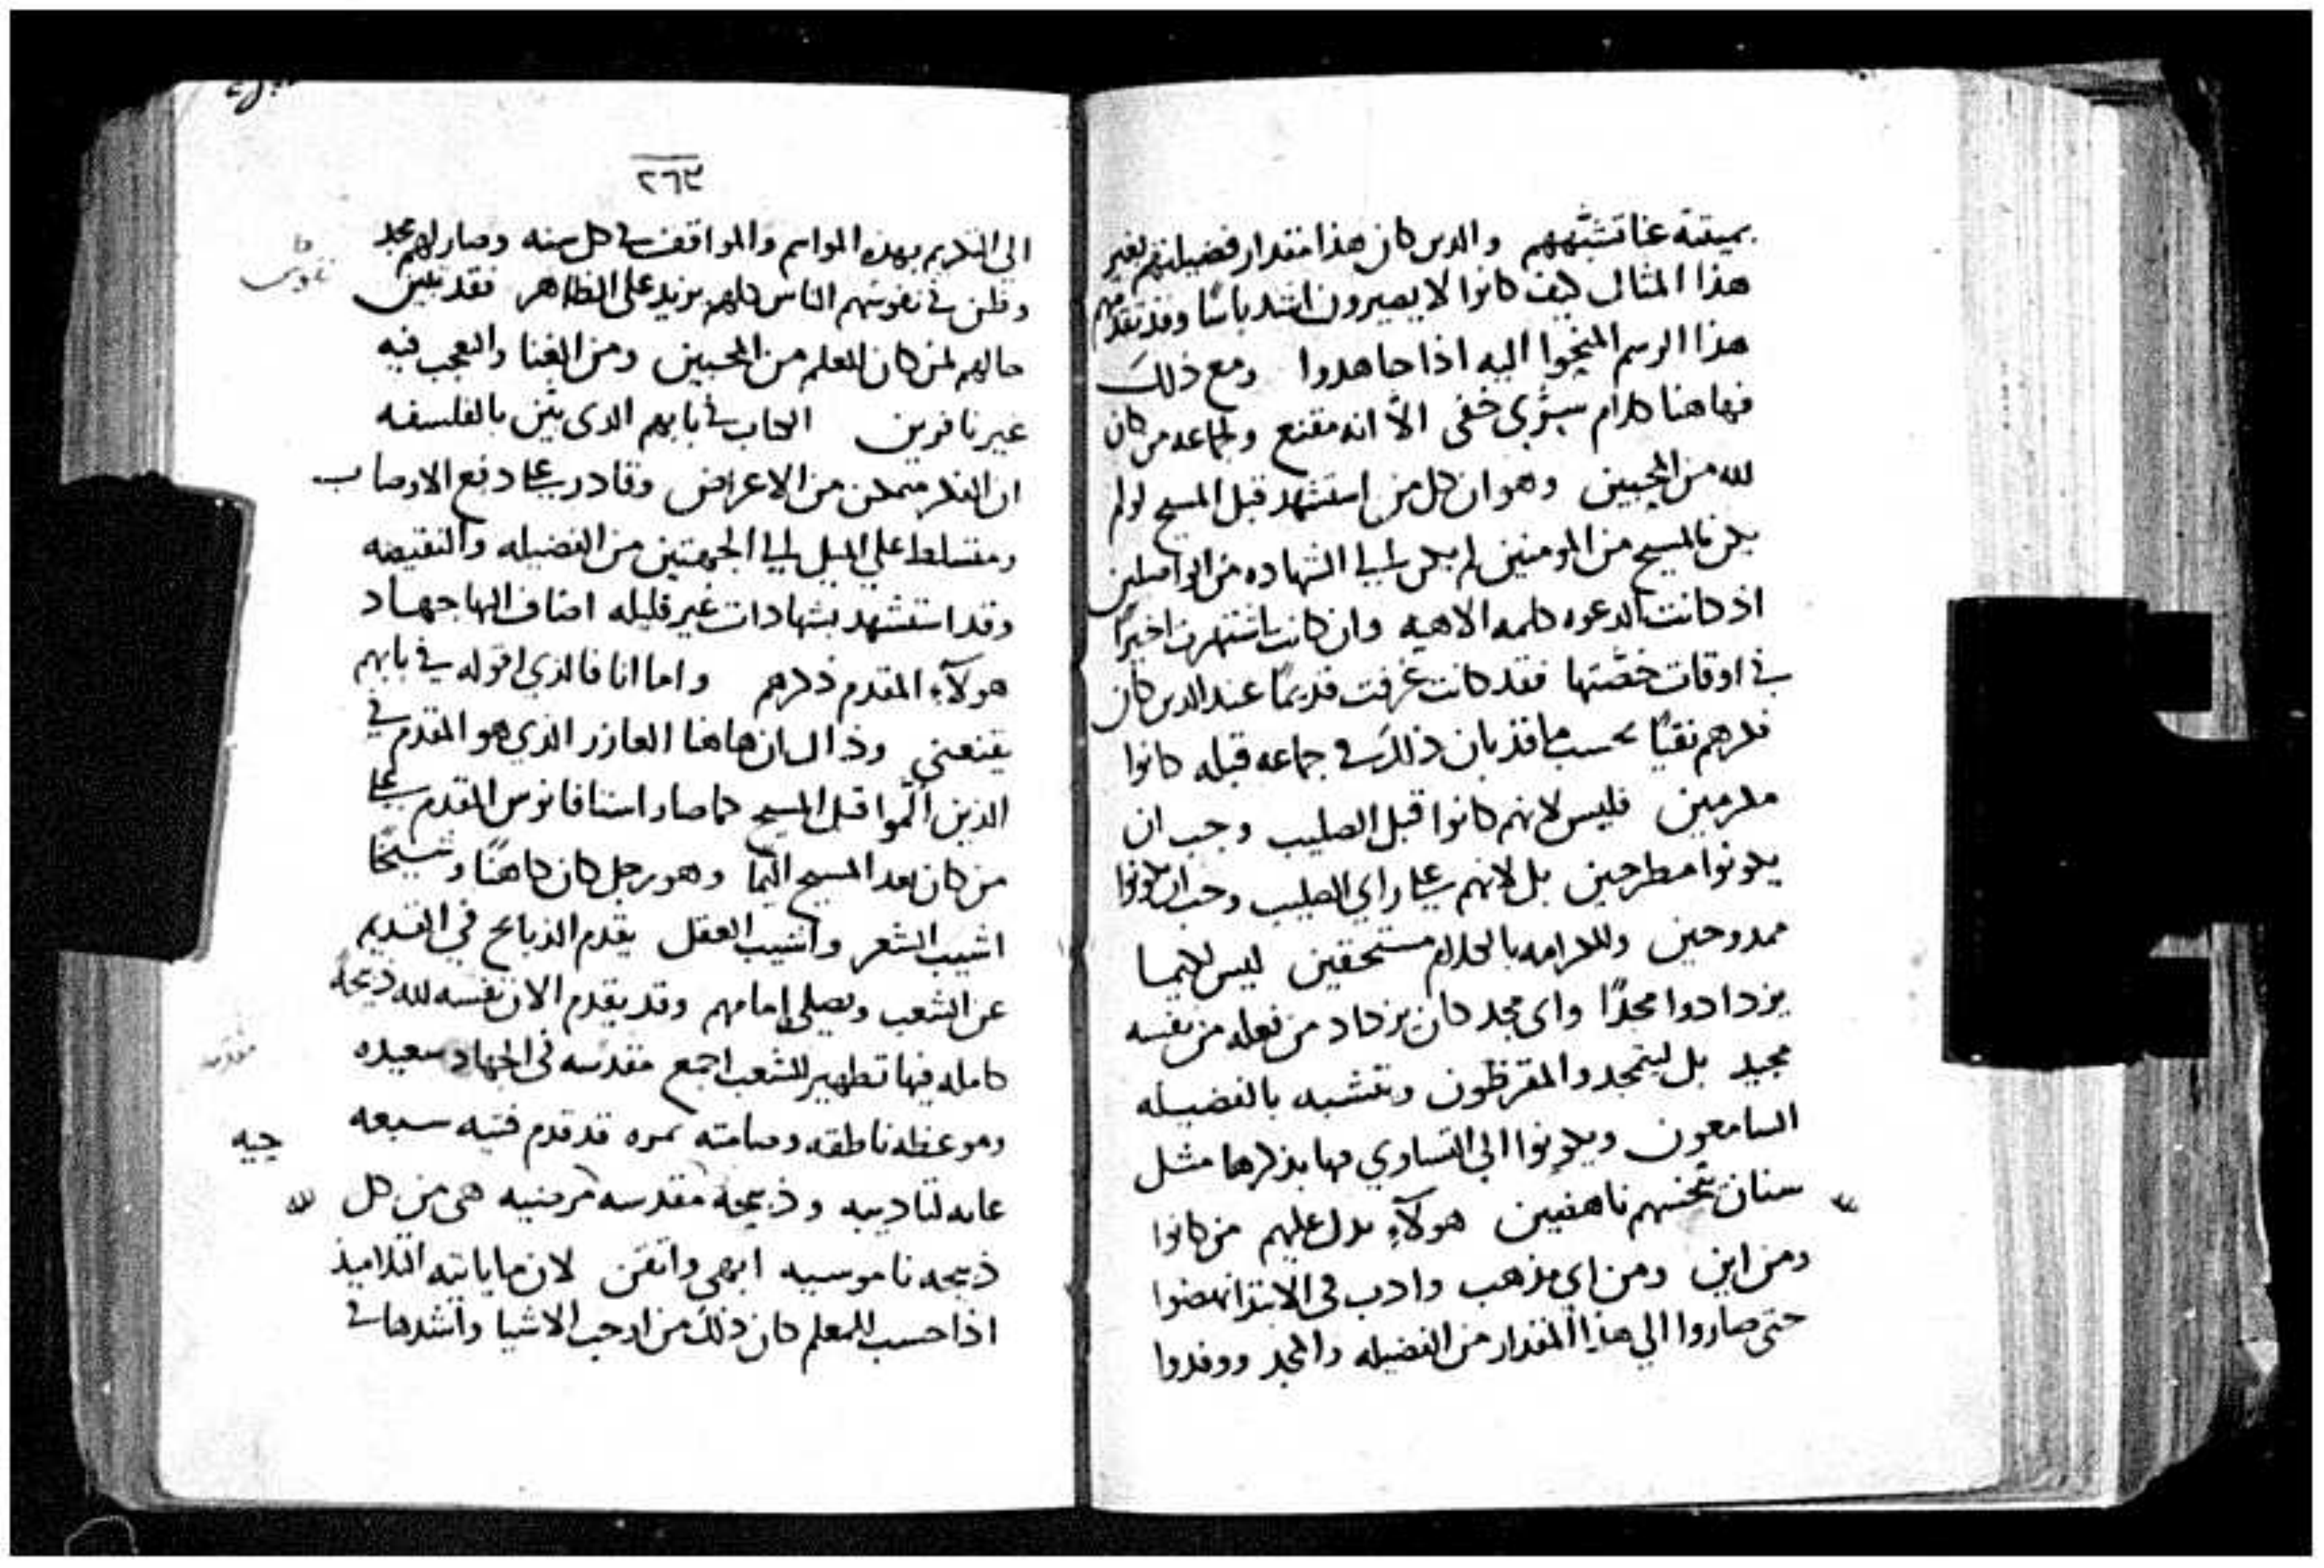 بميتة عنا تشبههم والدين كان هذا مقدار فضيلتهم لغير
هذا المثال كيف كانوا لا يصيرون اشد باسًا وقد تقدمهم
هذا الرسم اليه اذا جاهدوا ومع ذلك
فهاهنا كلام سرّي خفى الّا انه مقنع ولجماعه من كان
لله من المحبين وهو ان كل من استشهد قبل المسيح لو لم
يكن بالمسيح من المومنين لم يكن الي الشهاده من الواصلين
اذ كانت الدعوه كلمه الاهيه وان كانت اشتهرت اخيرًا
في اوقات خصّتها فقد كانت عُرفت قديمًا عند الدين كان
فكرهم نقيًا بحسب ما قد بان ذلك في جماعه قبله كانوا
مكرمين فليس لانهم كانوا قبل الصليب وجب ان
يكونوا مطرحين بل لانهم على راي الصليب وجب ان يكونوا
ممدوحين وللكرامه بالكلام مستحقين ليس لكيما
يزدادوا مجدًا واى مجد كان يزداد من فعله من نفسه
مجيد بل ليتمجد والمقرظون وتتشبه بالفضيله
السامعون ويكونوا الي التساوي بها بذكرها مثل
سنان تنخسهم ناهضين هولآءِ يدل عليهم من كانوا
ومن اين ومن اي مذهب وادب في الابتدا نهضوا
حتى صاروا الي هذا المقدار من الفضيله والمجد ووفدوا
٢٦٣
الى التكريم بهذه المواسم والمواقف في كل سنه وصار لهم مجد
وظن في نفوسهم الناس كلهم يزيد على الظاهر فقد تبين
حالهم لمن كان للعلم من المحبين ومن الغنا والتعجب فيه
غير نافرين الكتاب في بابهم الدى يبيّن بالفلسفه
ان الفكر متمكن من الاعراض وقادر على دفع الاوصاب
ومتسلط على الميل الي الجهتين من الفضيله والنقيصه
وقد استشهد بشهادات غير قليله اضاف اليها جهاد
هولآءِ المقدم ذكرهم واما انا فالذي اقوله في بابهم
يقنعني وذاك ان هاهنا العازر الذي هو المقدم في
الذين ألّموا قبل المسيح كما صار استافانوس المقدم على
من كان بعد المسيح اليمًا وهو رجل كان كاهنًا وشيخًا
اشيب الشعر واشيب العقل يقدم الذبايح في القديم
عن الشعب ويصلي امامهم وقد يقدم الان نفسه لله ذبيحة
كامله فيها تطهير للشعب اجمع مقدسه في الجهاد سعيده
وموعظه ناطقه وصامته نمره قد قدم فتيه سبعه
جيه
لتاديبه وذبيحة مقدسه مرضيه هى من كل
لله
ذبيحه ناموسيه ابهى واتقن لان ما ياتيه التلاميذ
اذا حسب للمعلم كان ذلك من اوجب الاشيا واشدها في